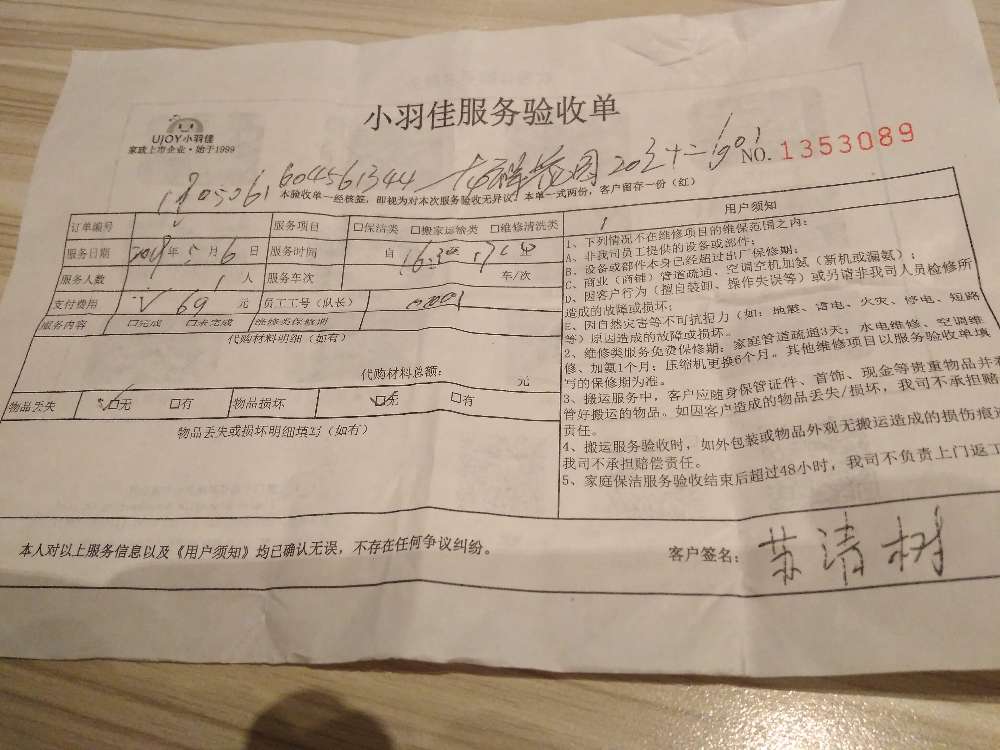 小羽佳服务验收单
UJOY小羽佳
家政上市企业·始于1999
NO. 1353089
本验收单一经核签,即视为对本次服务验收无异议。本单一式两份,客户留存一份(红)
订单编号 服务项目 □保洁类 □搬家运输类 □维修清洗类
服务日期 2018年5月6日 服务时间 自
服务人数 1人 服务车次 车/次
支付费用 69 元 员工工号(队长)
服务内容 □完成 □未完成 维修类保修期
代购材料明细(如有)
代购材料总额: 元
物品丢失 □无 □有 物品损坏 □无 □有
物品丢失或损坏明细填写(如有)
用户须知
1、下列情况不在维修项目的维保范围之内:
A、非我司员工提供的设备或部件;
B、设备或部件本身已经超过出厂保修期;
C、商业(商铺)管道疏通、空调空机加氨(新机或漏氨);
D、因客户行为(擅自装卸、操作失误等)或另请非我司人员检修所
造成的故障或损坏;
E、因自然灾害等不可抗拒力(如:地震、雷电、火灾、停电、短路
等)原因造成的故障或损坏。
2、维修类服务免费保修期:家庭管道疏通3天;水电维修、空调维
修、加氨1个月;压缩机更换6个月。其他维修项目以服务验收单填
写的保修期为准。
3、搬运服务中,客户应随身保管证件、首饰、现金等贵重物品并
管好搬运的物品。如因客户造成的物品丢失/损坏,我司不承担赔
责任。
4、搬运服务验收时,如外包装或物品外观无搬运造成的损伤痕
我司不承担赔偿责任。
5、家庭保洁服务验收结束后超过48小时,我司不负责上门返
本人对以上服务信息以及《用户须知》均已确认无误,不存在任何争议纠纷。
客户签名: 苏清树